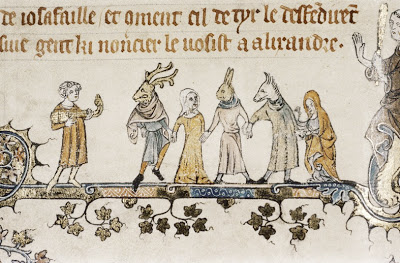 de iosafaille et ꝯment cil de tyr le deffēdirēt
suie gent ki noncier le vosist a alixandre.